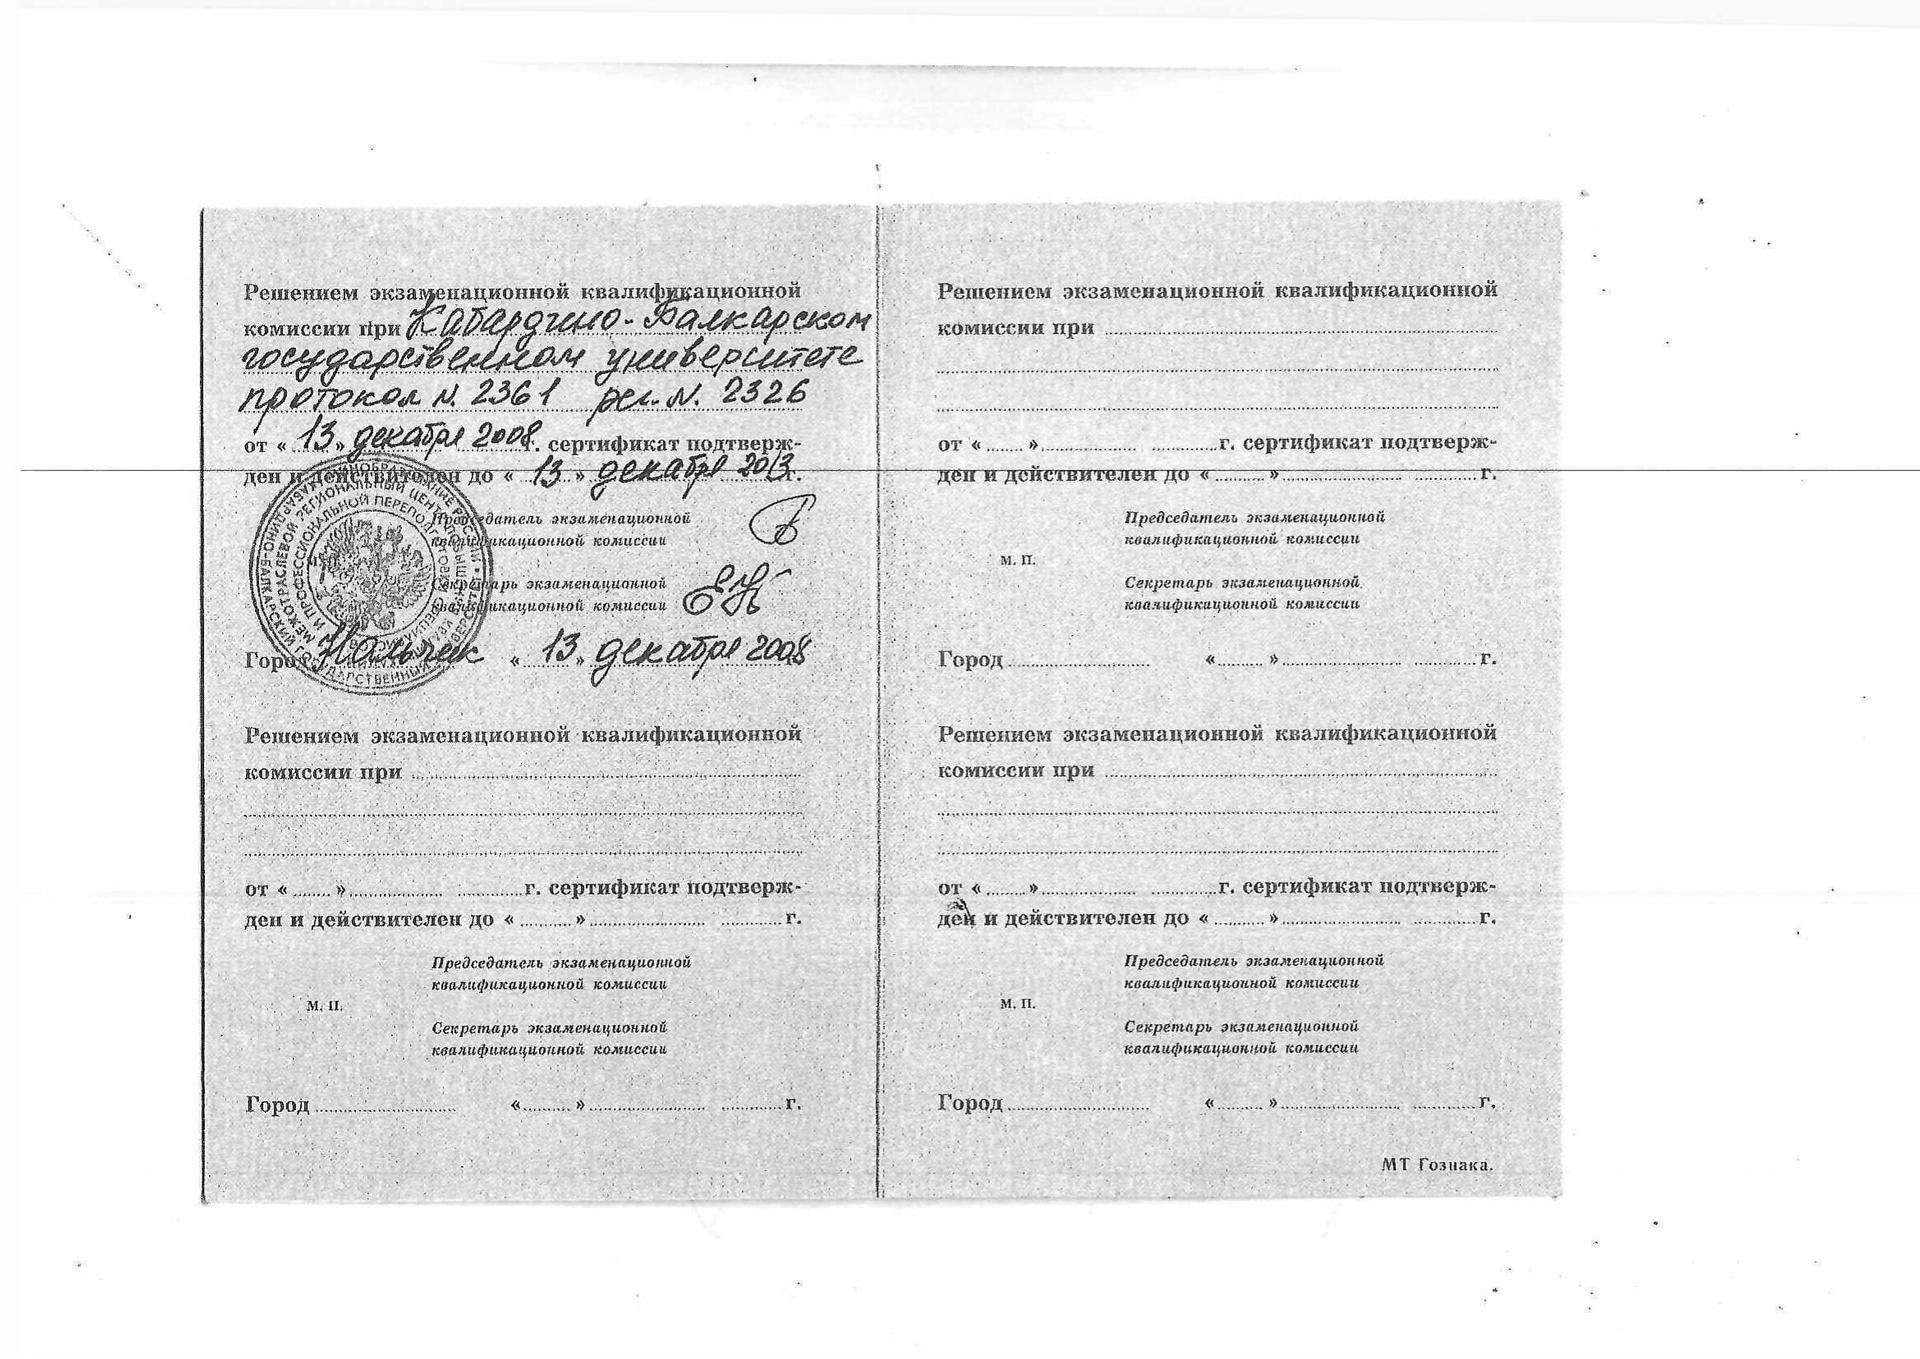 Решением экзаменационной квалификационной
комиссии при Кабардино-Балкарском
государственном университете
протокол N. 2361 рег. N. 2326
от « 13 » декабря 2008 г. сертификат подтверж-
ден и действителен до « 13 » декабря 2013 г.
Председатель экзаменационной
квалификационной комиссии
Секретарь экзаменационной
квалификационной комиссии
Город Нальчик « 13 » декабря 2008
Решением экзаменационной квалификационной
комиссии при
от « » г. сертификат подтверж-
ден и действителен до « » г.
Председатель экзаменационной
квалификационной комиссии
М. П.
Секретарь экзаменационной
квалификационной комиссии
Город « » г.
Решением экзаменационной квалификационной
комиссии при
от « » г. сертификат подтверж-
ден и действителен до « » г.
Председатель экзаменационной
квалификационной комиссии
М. П.
Секретарь экзаменационной
квалификационной комиссии
Город « » г.
Решением экзаменационной квалификационной
комиссии при
от « » г. сертификат подтверж-
ден и действителен до « » г.
Председатель экзаменационной
квалификационной комиссии
М. П.
Секретарь экзаменационной
квалификационной комиссии
Город « » г.
МТ Гознака.